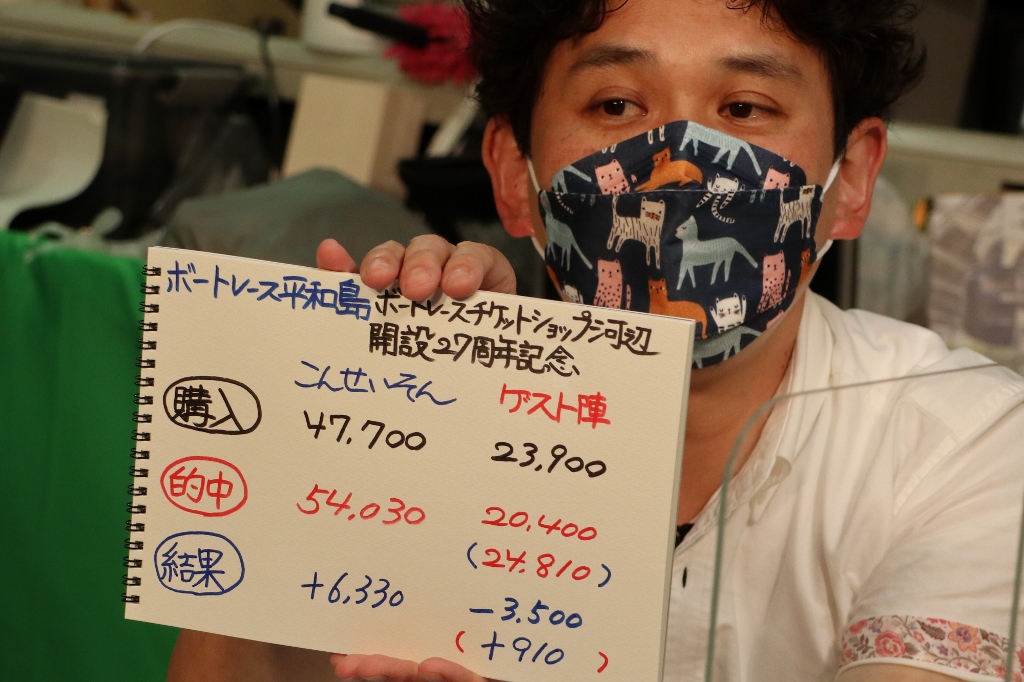 ボートレース平和島
ボートレースチケットショップ河辺
開設27周年記念
こんせいそん ゲスト陣
購入 47,700 23,900
的中 54,030 20,400
(24,810)
結果 +6,330 -3,500
(+910)